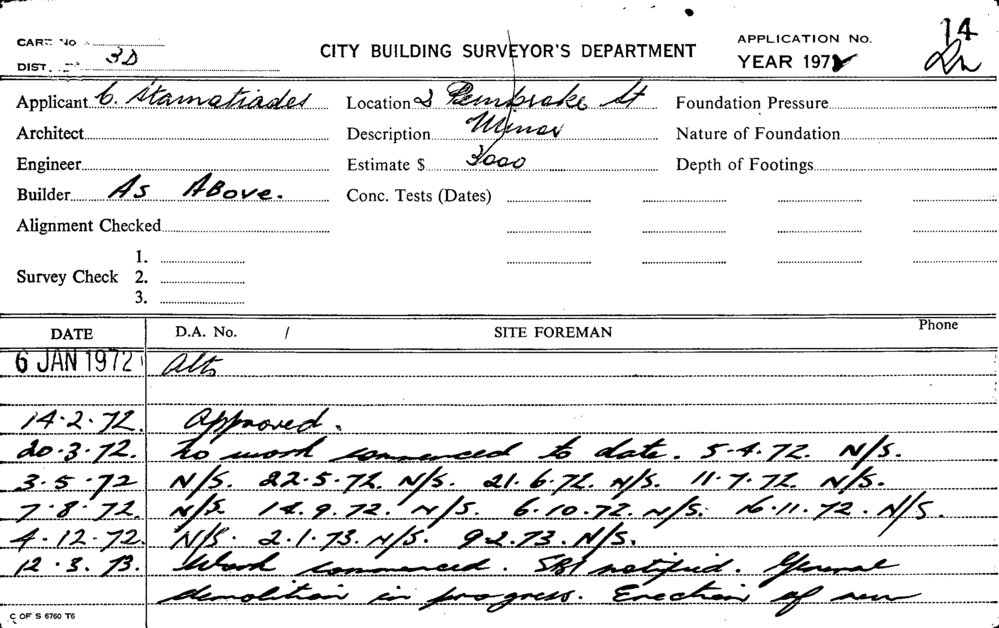 CARD No
DIST. 3D
CITY BUILDING SURVEYOR'S DEPARTMENT
APPLICATION No. 14
YEAR 1972
Applicant C. Stamatiades
Location 2 Pembroke St
Foundation Pressure
Architect
Description Minor
Nature of Foundation
Engineer
Estimate $ 3000
Depth of Footings
Builder As Above.
Conc. Tests (Dates)
Alignment Checked
1.
Survey Check 2.
3.
DATE D.A. No. / SITE FOREMAN Phone
6 JAN 1972 Alts
14.2.72. Approved.
20.3.72. No work commenced to date. 5-4.72. N/S.
3.5.72 N/S. 22.5.72. N/S. 21.6.72. N/S. 11.7.72 N/S.
7.8.72. N/S. 14.9.72. N/S. 6.10.72. N/S. 16.11.72. N/S.
4.12.72. N/S. 2.1.73. N/S. 9.2.73. N/S.
12.3.73. Work commenced. SBI notified. General
demolition in progress. Erection of new
C OF S 6760 T6